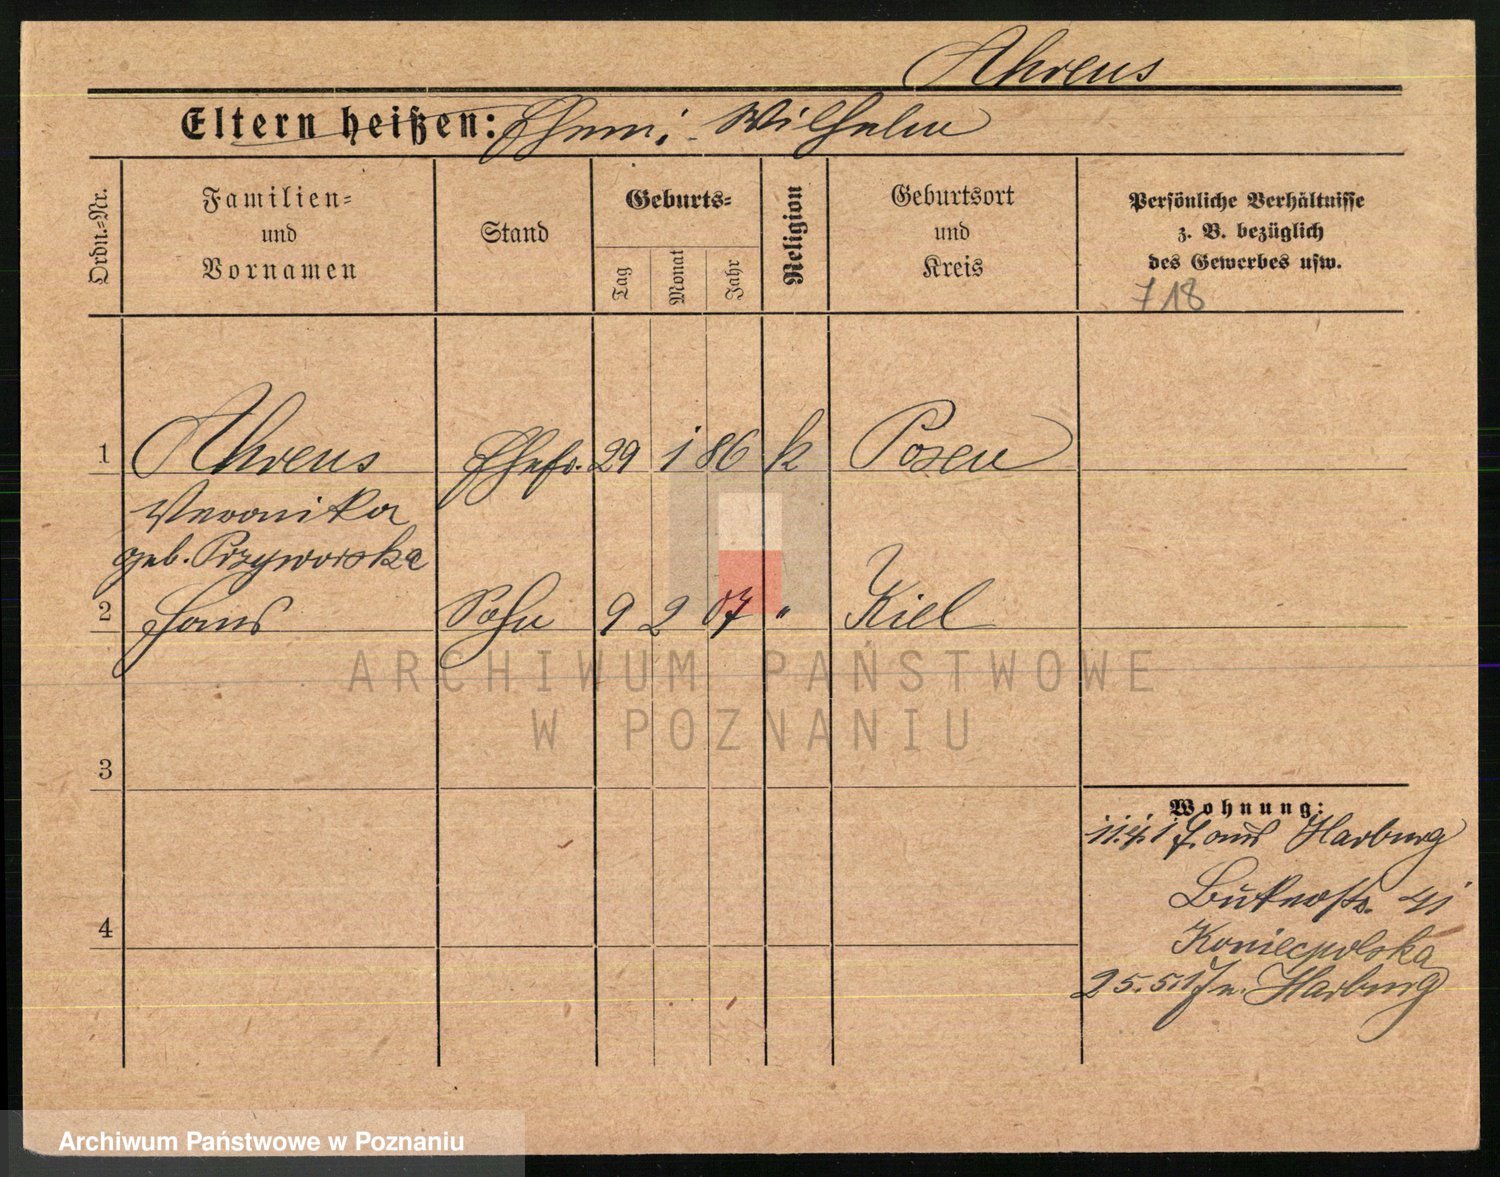 Ahrens
Eltern heißen: Ehem: Wilhelm
Ordn.-Nr.
Familien-
und
Vornamen
Stand
Geburts-
Tag
Monat
Jahr
Religion
Geburtsort
und
Kreis
Persönliche Verhältnisse
z. B. bezüglich
des Gewerbes usw.
718
1 Ahrens Ehefr. 29 1 86 k Posen
Veronika
geb. Przyworska
2 Hans Sohn 9 2 07 " Kiel
3
Wohnung:
11.4.17 aus Harburg
Bukerstr. 41
4
Koniecpolska
25.5.17 n. Harburg
ARCHIWUM PAŃSTWOWE
W POZNANIU
Archiwum Państwowe w Poznaniu